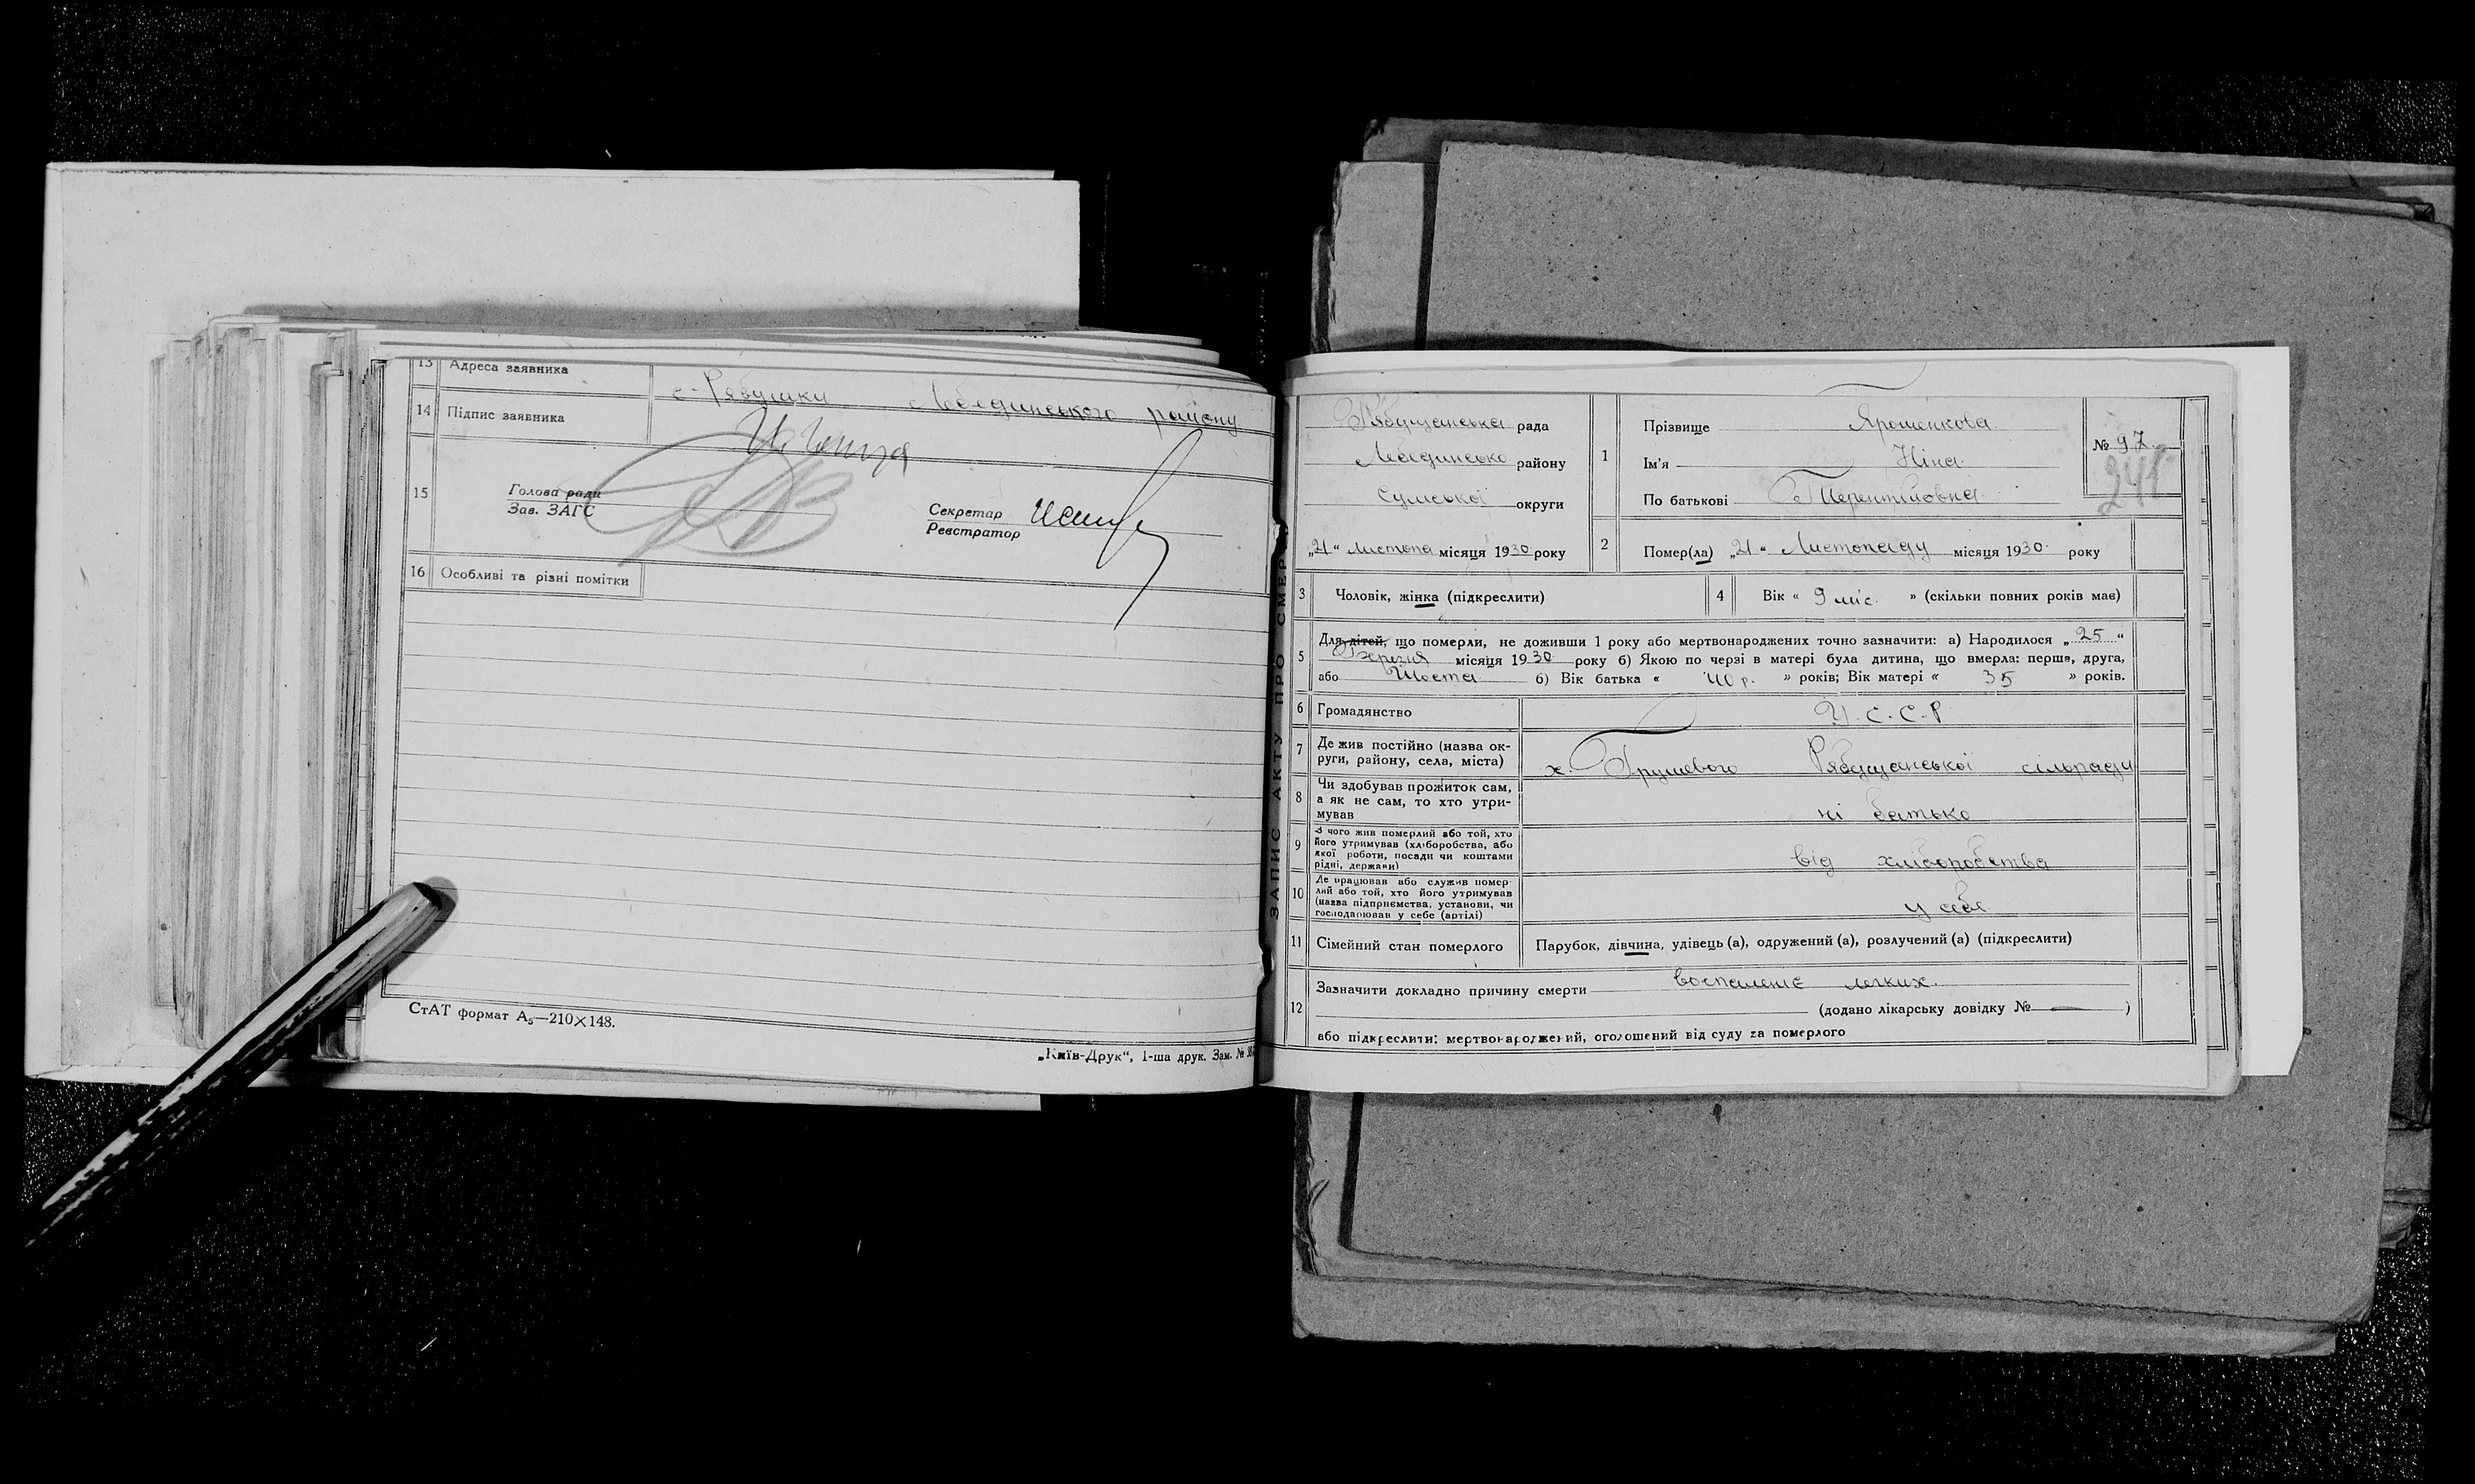 13 Адреса заявника с-Рябушки Лебединського району
14 Підпис заявника
15 Голова ради
Зав. ЗАГС
Секретар
Реєстратор
16 Особливі та різні помітки
СтАТ формат А₅—210×148.
„Київ-Друк“, 1-ша друк. Зам. №
ЗАПИС АКТУ ПРО СМЕР
Рябушанська рада
Лебединсько району
Сумської округи
„21“ листопа місяця 1930 року
1 Прізвище Ярошенкова
Ім'я Ніна
По батькові Терентиовна
№ 97.
241
2 Помер(ла) „21“ Листопаду місяця 1930 року
3 Чоловік, жінка (підкреслити)
4 Вік « 9 міс. » (скільки повних років має)
5 Для дітей, що померли, не доживши 1 року або мертвонароджених точно зазначити: а) Народилося „25“
Березня місяця 1930 року б) Якою по черзі в матері була дитина, що вмерла: перша, друга,
або Шоста б) Вік батька « 40 р. » років; Вік матері « 35 » років.
6 Громадянство У.С.С.Р
7 Де жив постійно (назва ок-
руги, району, села, міста) х. Грушевого Рябушанської сільради
8 Чи здобував прожиток сам,
а як не сам, то хто утри-
мував ні батько
9 З чого жив померлий або той, хто
його утримував (хліборобства, або
якої роботи, посади чи коштами
рідні, держави) від хліборобства
10 Де працював або служив помер-
лий або той, хто його утримував
(назва підприємства, установи, чи
господарював у себе (артілі) у себе
11 Сімейний стан померлого Парубок, дівчина, удівець (а), одружений (а), розлучений (а) (підкреслити)
12 Зазначити докладно причину смерти воспаленіє легких.
(додано лікарську довідку № — )
або підкреслити: мертвонароджений, оголошений від суду за померлого